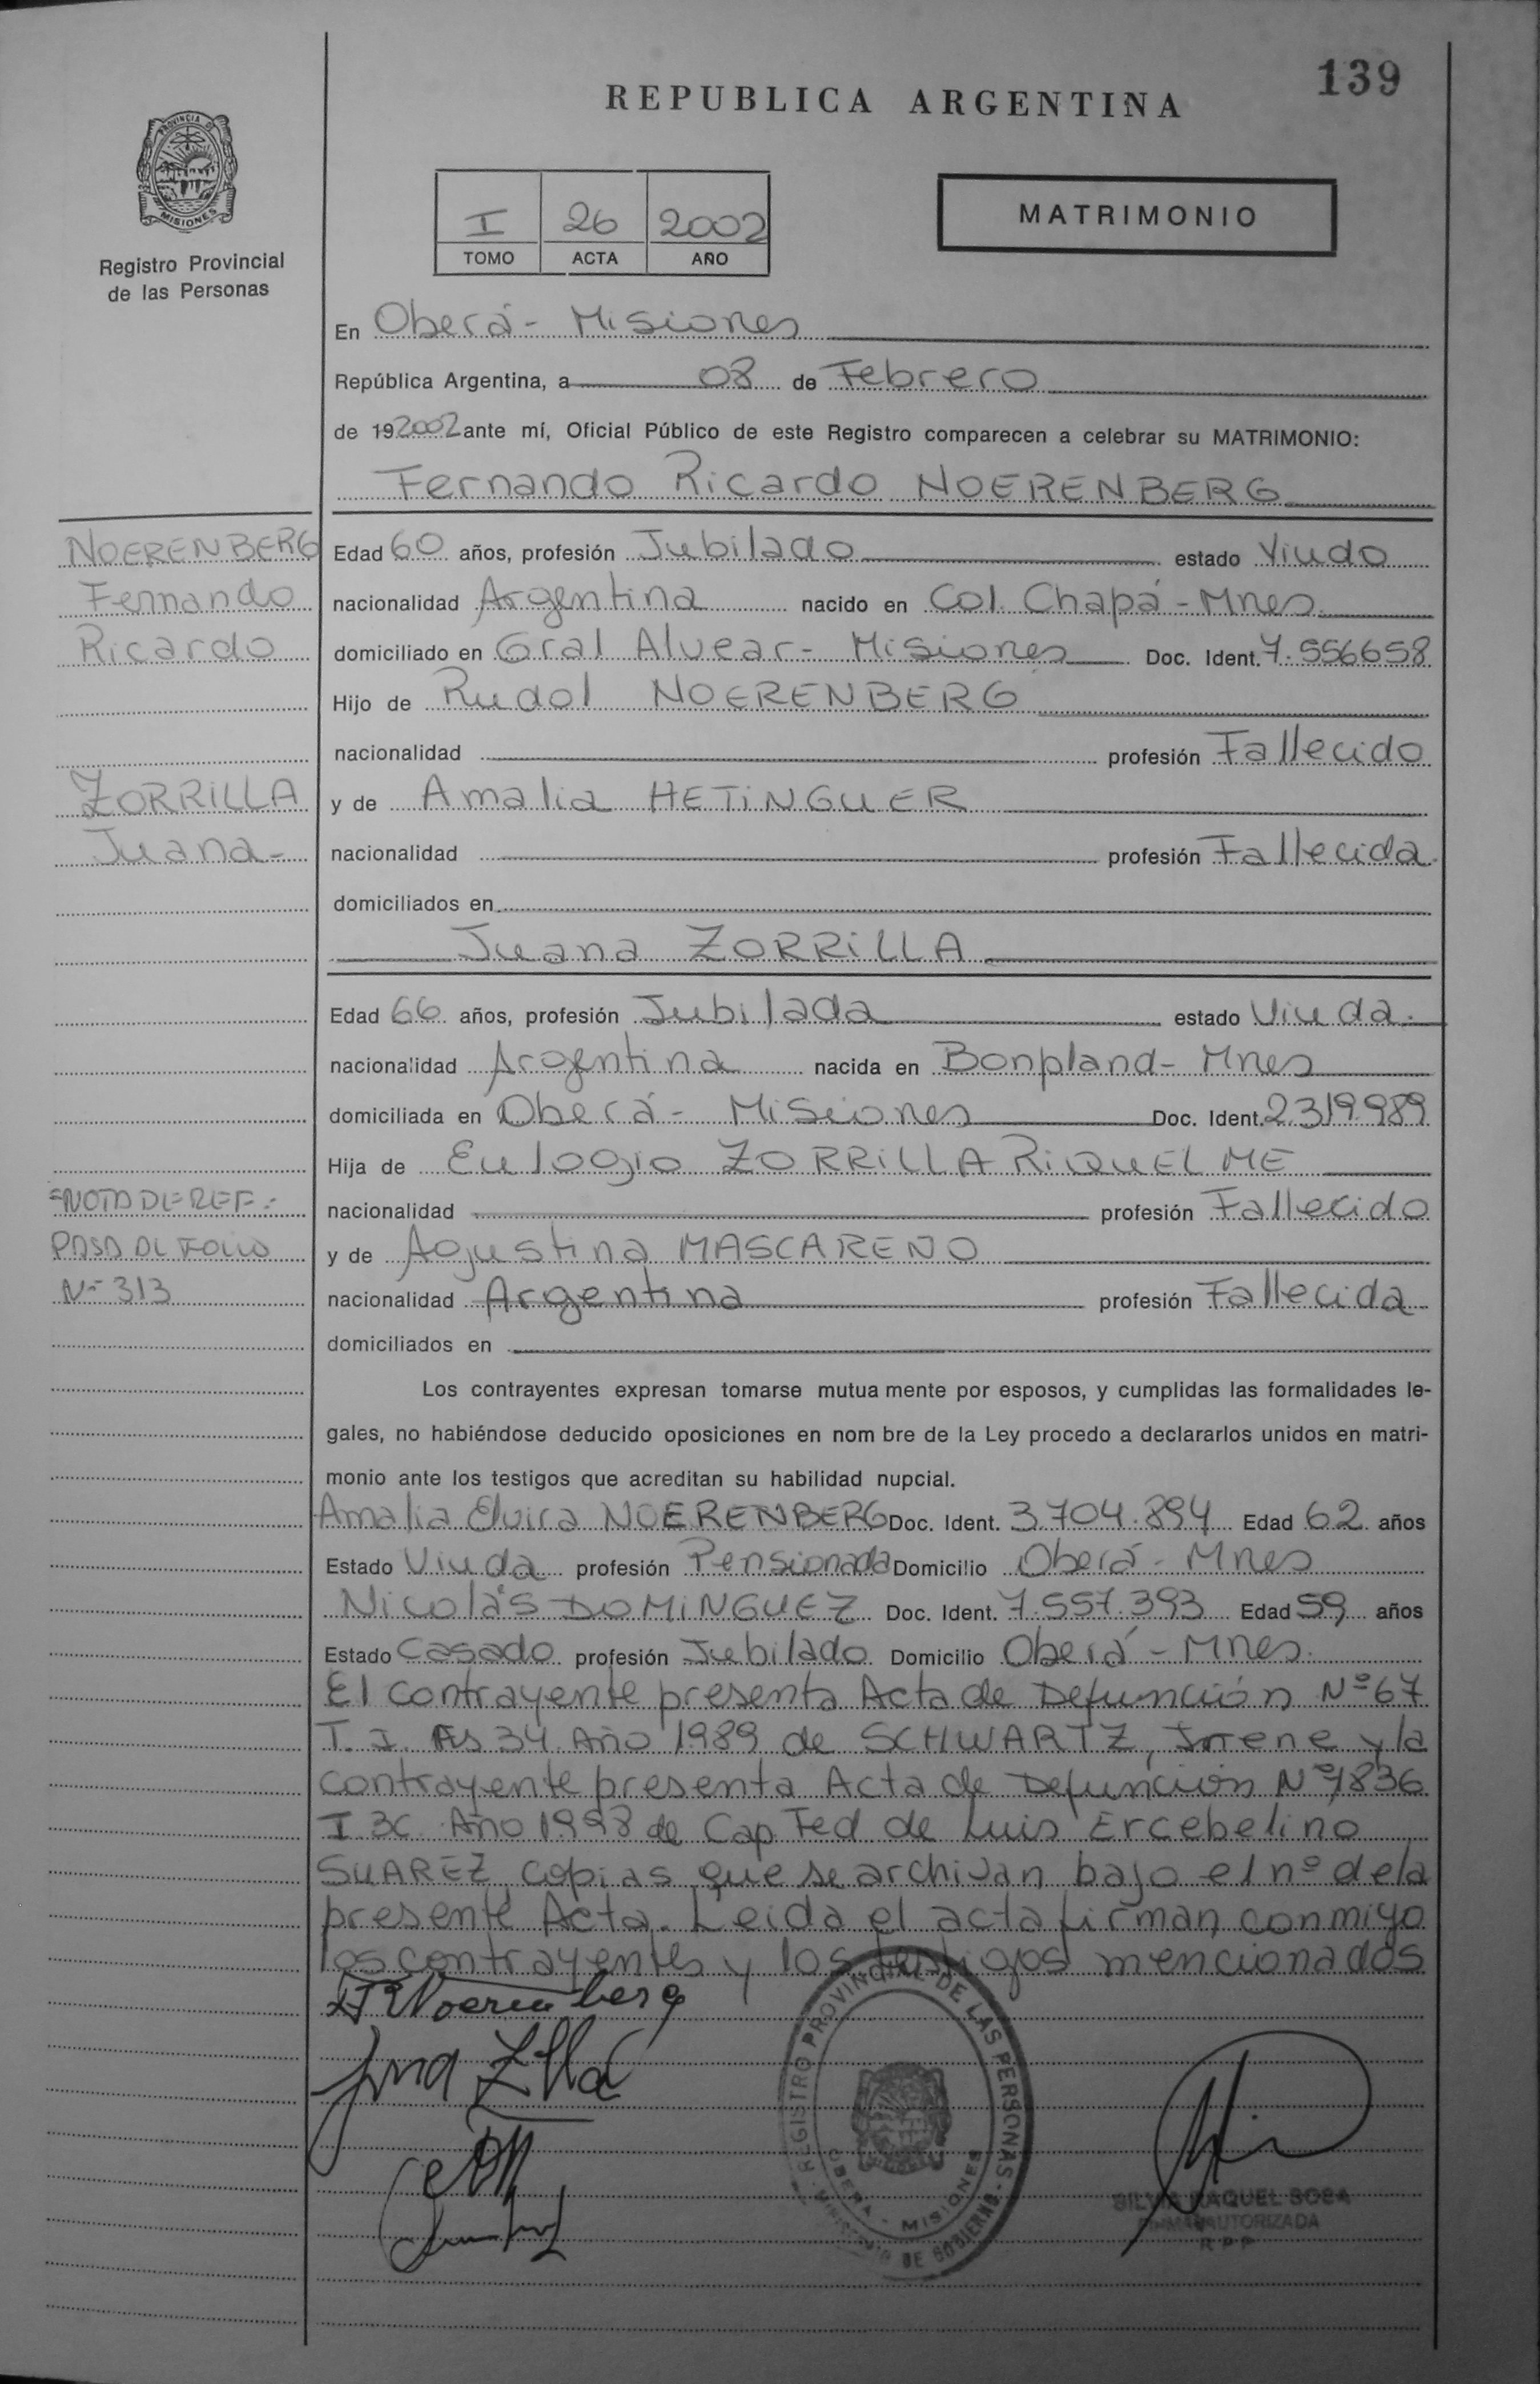 139
REPUBLICA ARGENTINA
PROVINCIA DE
MISIONES
Registro Provincial
de las Personas
I 26 2002
TOMO ACTA AÑO
MATRIMONIO
En Oberá - Misiones
República Argentina, a 08 de Febrero
de 192002 ante mí, Oficial Público de este Registro comparecen a celebrar su MATRIMONIO:
Fernando Ricardo NOERENBERG
NOERENBERG
Fernando
Ricardo
Edad 60 años, profesión Jubilado estado Viudo
nacionalidad Argentina nacido en Col. Chapá - Mnes
domiciliado en Gral Alvear - Misiones Doc. Ident. 7.556658
Hijo de Rudol NOERENBERG
nacionalidad profesión Fallecido
ZORRILLA
Juana -
y de Amalia HETINGUER
nacionalidad profesión Fallecida
domiciliados en
Juana ZORRILLA
Edad 66 años, profesión Jubilada estado Viuda.
nacionalidad Argentina nacida en Bonpland - Mnes
domiciliada en Oberá - Misiones Doc. Ident. 2.319.989
Hija de Eulogio ZORRILLA RIQUELME
=NOTA DE REF.=
PASA AL FOLIO
Nº 313
nacionalidad profesión Fallecido
y de Agustina MASCARENO
nacionalidad Argentina profesión Fallecida
domiciliados en
Los contrayentes expresan tomarse mutua mente por esposos, y cumplidas las formalidades le-
gales, no habiéndose deducido oposiciones en nom bre de la Ley procedo a declararlos unidos en matri-
monio ante los testigos que acreditan su habilidad nupcial.
Amalia Elvira NOERENBERG Doc. Ident. 3.704.894 Edad 62 años
Estado Viuda profesión Pensionada Domicilio Oberá - Mnes
Nicolás DOMINGUEZ Doc. Ident. 7.557.393 Edad 59 años
Estado Casado profesión Jubilado Domicilio Oberá - Mnes.
El contrayente presenta Acta de Defunción Nº 67
T. I. Fs 34 Año 1989 de SCHWARTZ, Irrene y la
contrayente presenta Acta de Defunción Nº 1836
T 3C Año 1998 de Cap Fed de Luis Ercebelino
SUAREZ, copias que se archivan bajo el nº de la
presente Acta. Leida el acta firman conmigo
los contrayentes y los testigos mencionados
FR Noerenberg
REGISTRO PROVINCIAL DE LAS PERSONAS -
MINISTERIO DE GOBIERNO
OBERA - MISIONES
SILVIA RAQUEL SOSA
FIRMA AUTORIZADA
R P P